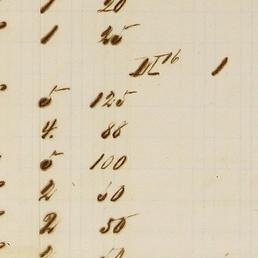 1 20
1 25
1
5 125
4. 88
5 100
2 50
2 50